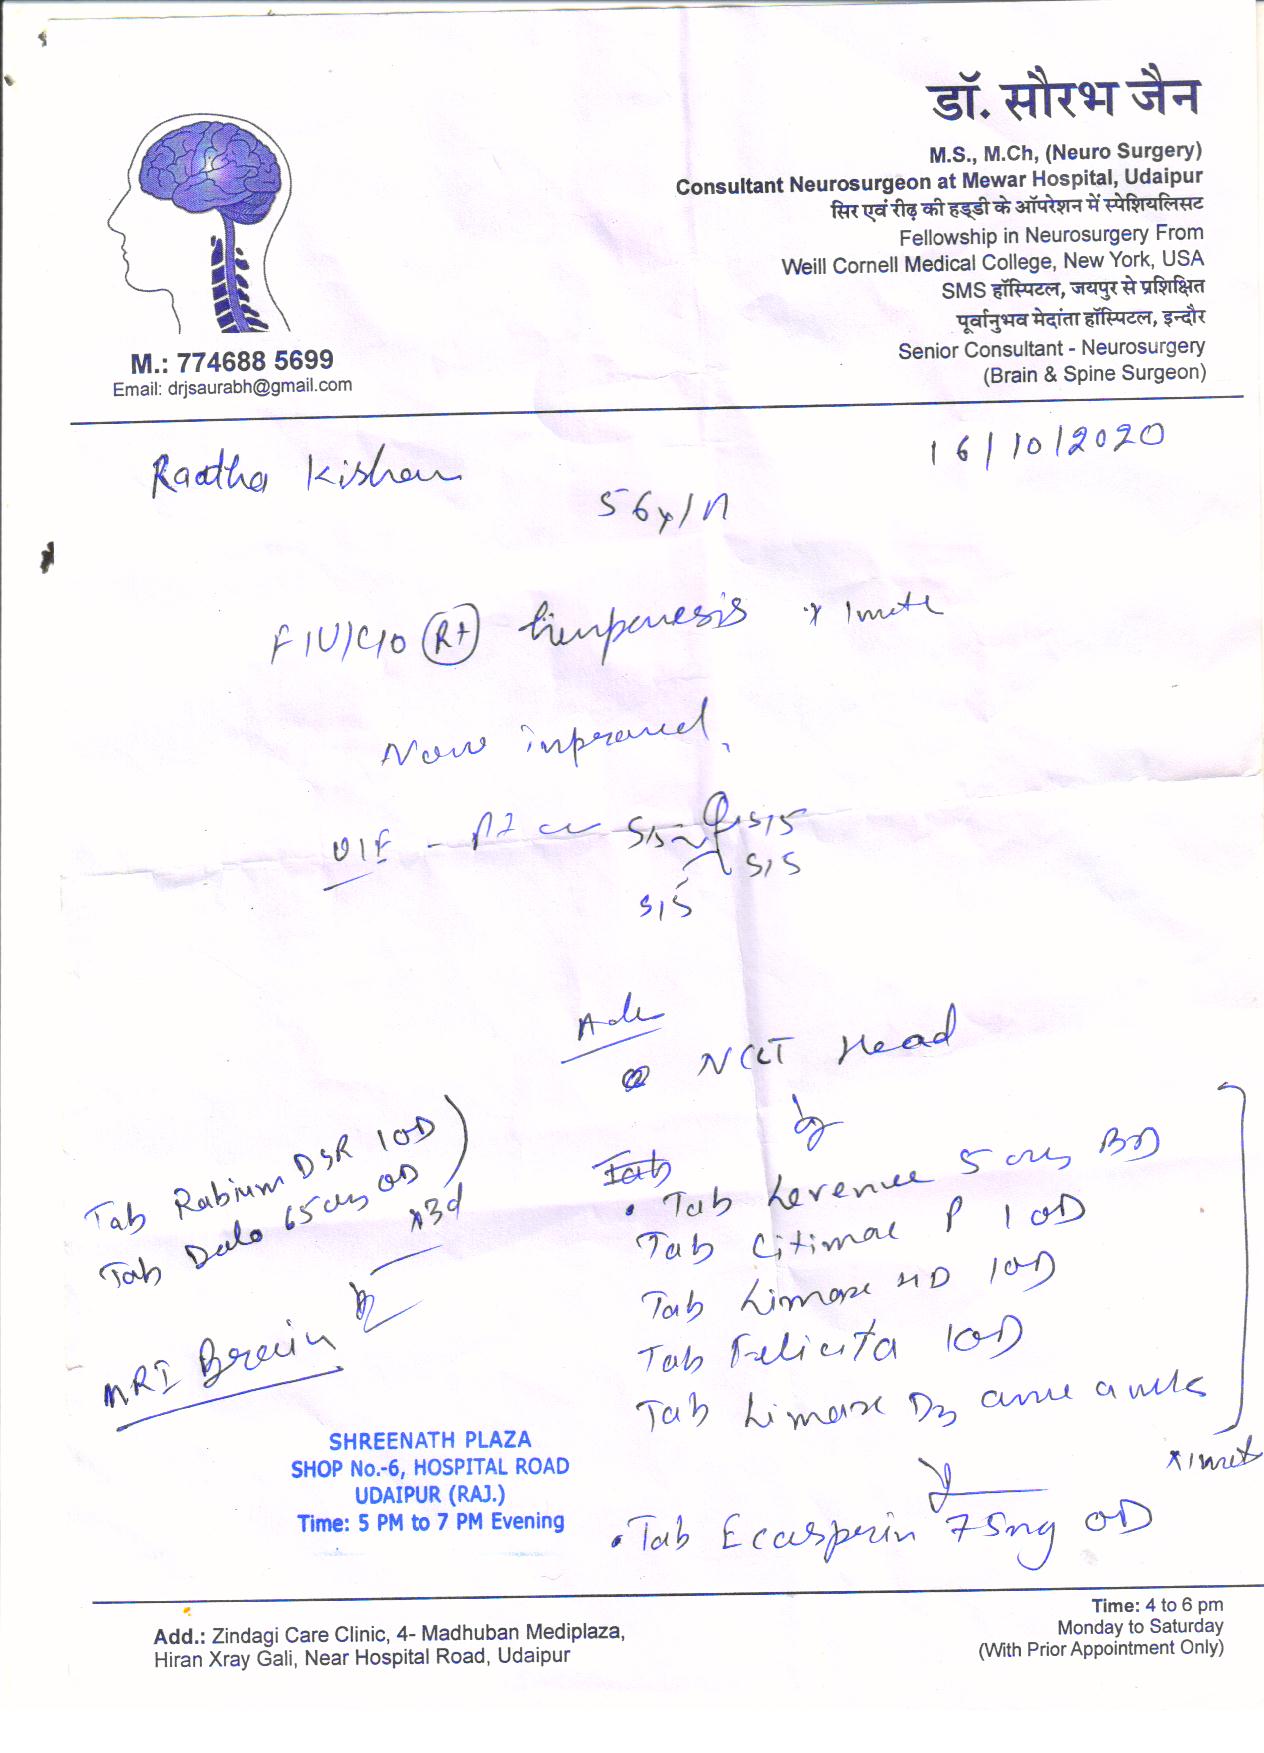 डॉ. सौरभ जैन
M.S., M.Ch, (Neuro Surgery)
Consultant Neurosurgeon at Mewar Hospital, Udaipur
सिर एवं रीढ़ की हड्डी के ऑपरेशन में स्पेशियलिसट
Fellowship in Neurosurgery From
Weill Cornell Medical College, New York, USA
SMS हॉस्पिटल, जयपुर से प्रशिक्षित
पूर्वानुभव मेदांता हॉस्पिटल, इन्दौर
Senior Consultant - Neurosurgery
(Brain & Spine Surgeon)
M.: 774688 5699
Email: drjsaurabh@gmail.com
16/10/2020
Radha Kishan
56y/M
F/U/C/O Rt hemiparesis x 1
Now improved
O/E -
5/5 5/5
5/5
5/5
Adv
NCCT Head
Tab
Tab 5 mg BD
Tab Citimac P 1 OD
Tab Limax HD 1 OD
Tab Felicita 1 OD
Tab Limax D3
Tab Ecosprin 75mg OD
Tab Rabium DSR 1 OD
Tab Dolo 65 mg OD
x3d
MRI Brain
SHREENATH PLAZA
SHOP No.-6, HOSPITAL ROAD
UDAIPUR (RAJ.)
Time: 5 PM to 7 PM Evening
Add.: Zindagi Care Clinic, 4- Madhuban Mediplaza,
Hiran Xray Gali, Near Hospital Road, Udaipur
Time: 4 to 6 pm
Monday to Saturday
(With Prior Appointment Only)